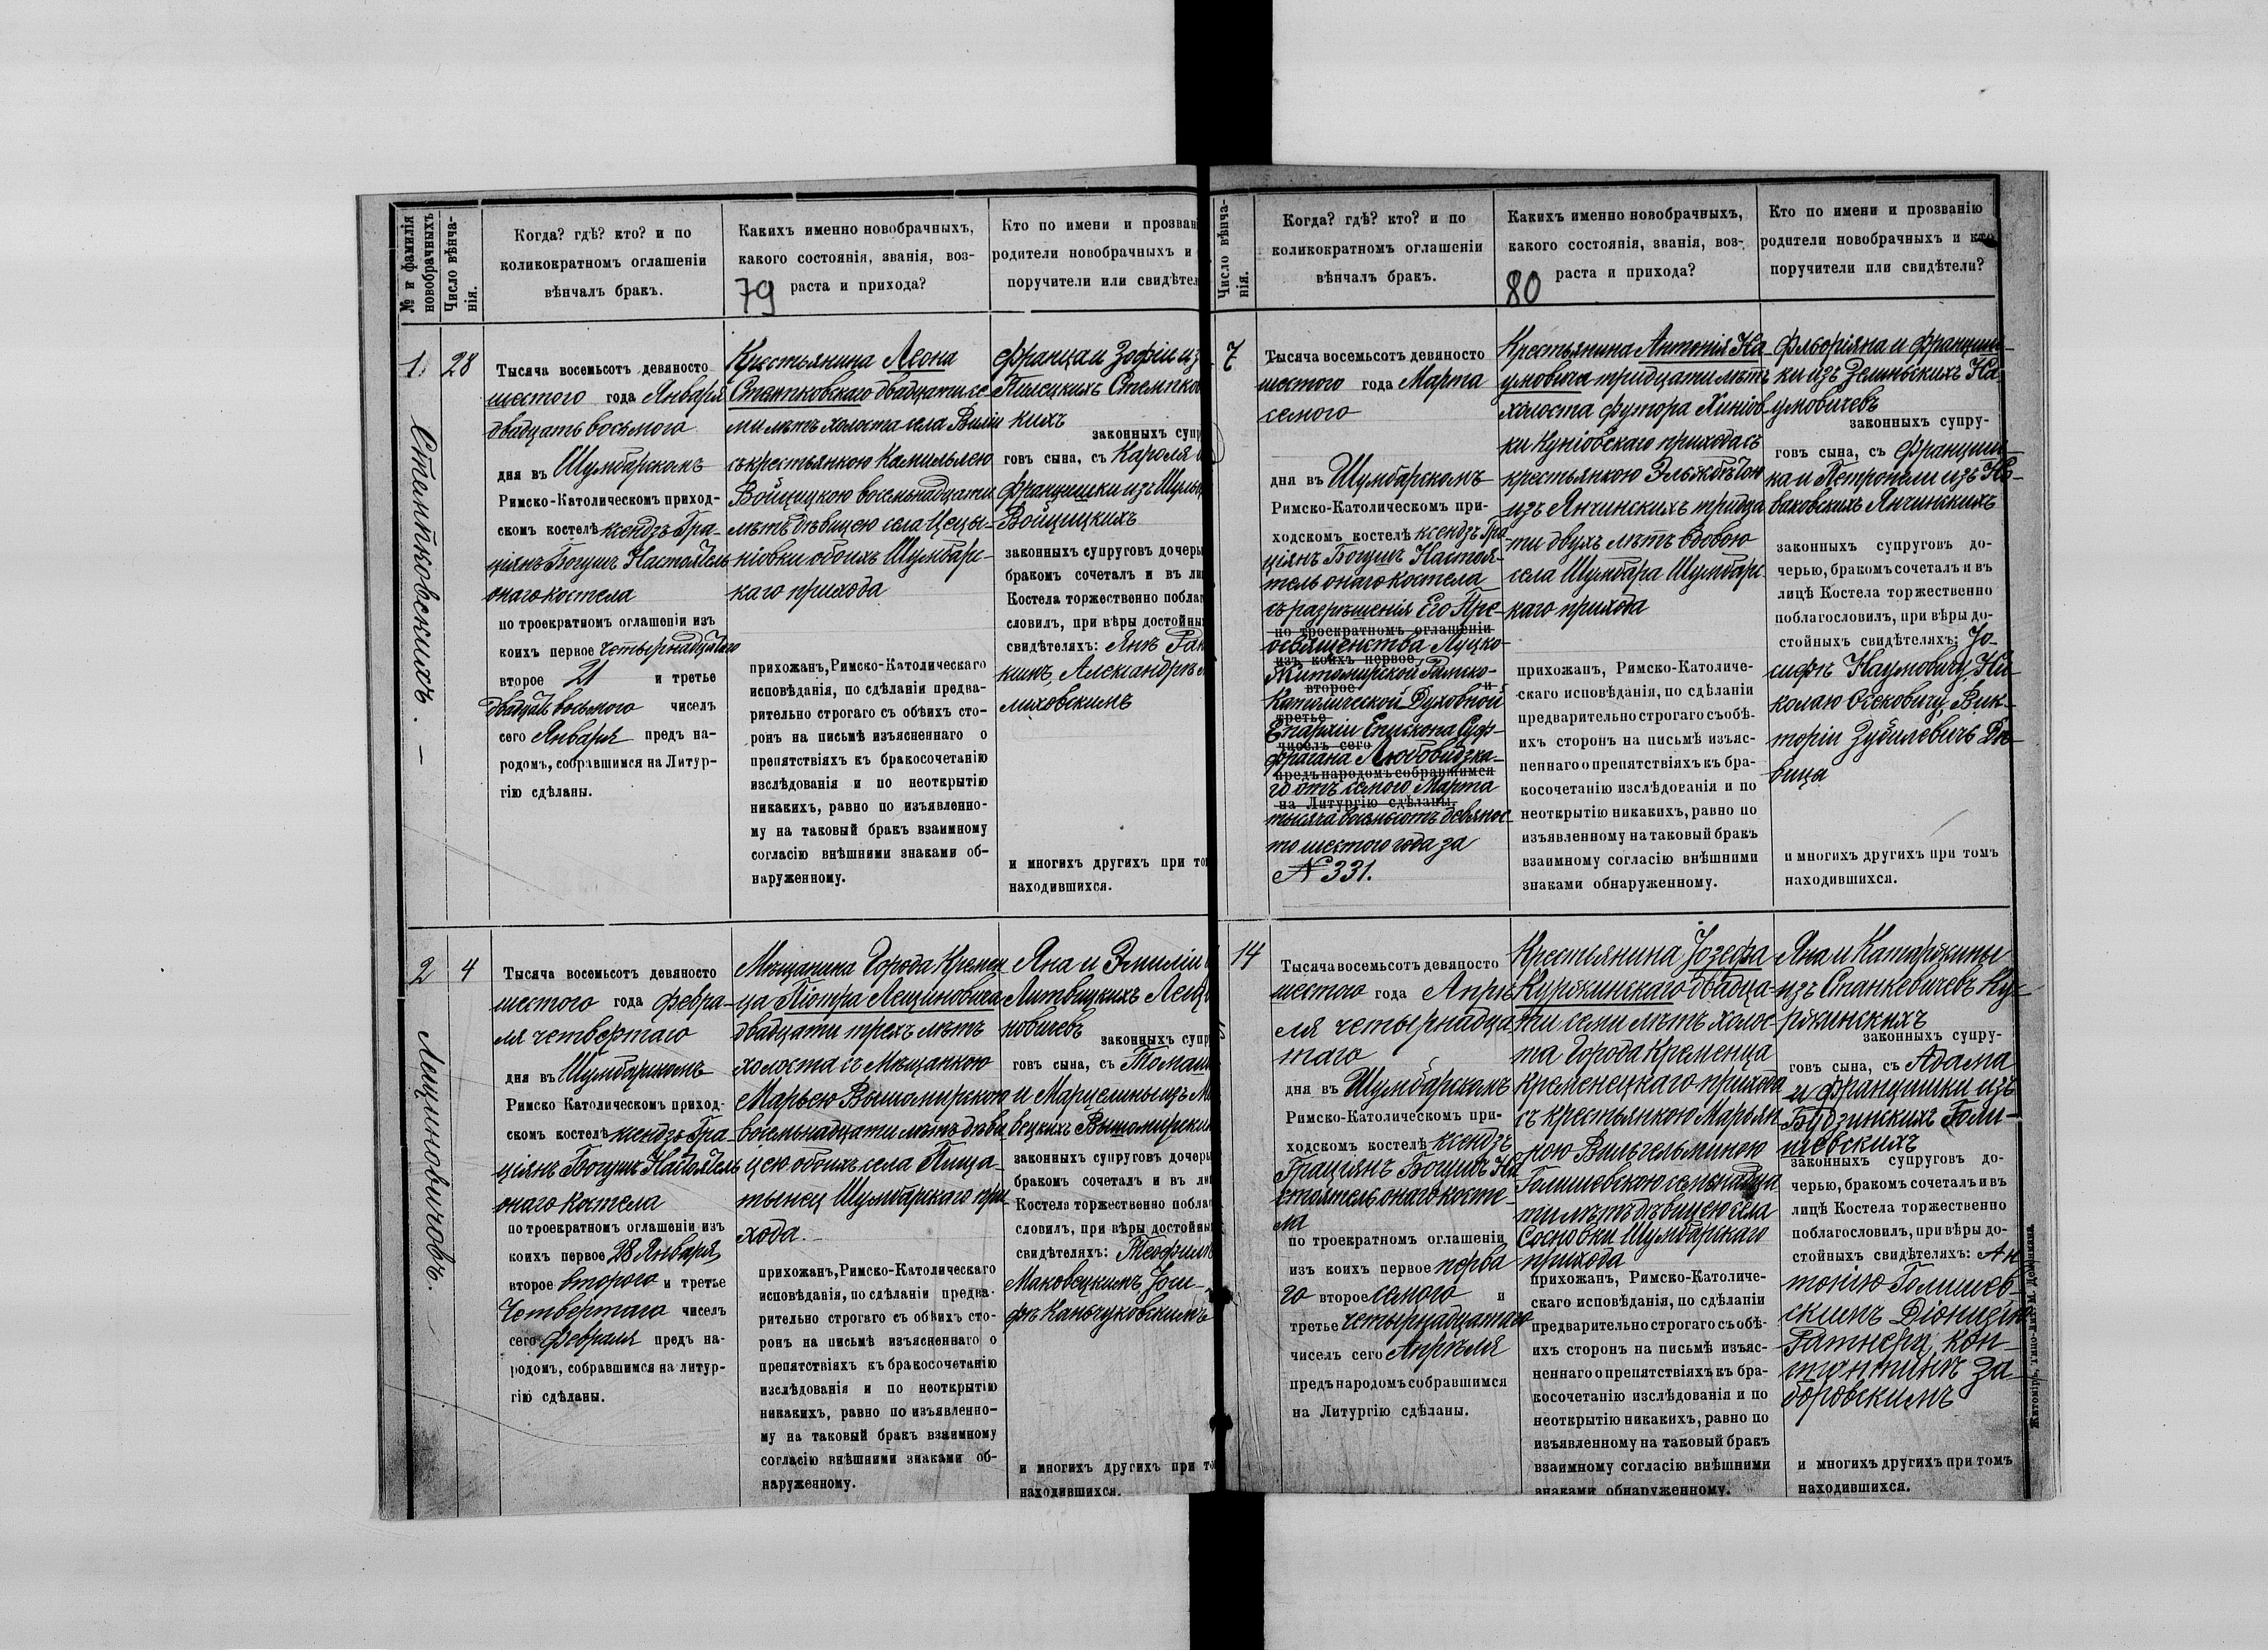 № и фамилія
новобрачныхъ
Число вѣнча-
нія.
Когда? гдѣ? кто? и по
коликократномъ оглашеніи
вѣнчалъ бракъ.
Каковыхъ именно новобрачныхъ,
какого состоянія, званія, воз-
раста и прихода?
79
Кто по имени и прозван
родители новобрачныхъ и
поручители или свидѣтел
1
28
Стемпковскихъ. —
Тысяча восемьсотъ девяносто
шестого года Января
двадцать восьмого
дня въ Шумбарскомъ
Римско-Католическомъ приход-
скомъ костелѣ ксендзъ Гра-
ціянъ Богушъ Настоятель
онаго костела
по троекратномъ оглашеніи изъ
коихъ первое четырнадцатаго
второе 21 и третье
двадцать восьмого чиселъ
сего Января предъ на-
родомъ, собравшимся на Литур-
гію сдѣланы.
Крестьянина Леона
Стемпковскаго двадцати се-
ми лѣтъ холоста села Виліи
съ крестьянкою Камильлею
Войцицкою восемьнадцати
лѣтъ дѣвицею села Цецы-
ніовки обоихъ Шумбарс-
каго прихода
прихожанъ, Римско-Католическаго
исповѣданія, по сдѣланіи предва-
рительно строгаго съ обѣихъ сто-
ронъ на письмѣ изъясненнаго о
препятствіяхъ къ бракосочетанію
изслѣдованія и по неоткрытію
никакихъ, равно по изъявленно-
му на таковый бракъ взаимному
согласію внѣшними знаками об-
наруженному.
Франца и Зофіи из
Пилецкихъ Стемпков
кихъ
законныхъ супр
говъ сына, съ Кароля
Францишки изъ
Войцицкихъ
законныхъ супруговъ дочерь
бракомъ сочеталъ и въ ли
Костела торжественно поблаг
словилъ, при вѣры достойны
свидѣтеляхъ: Янъ
кимъ, Александръ
лиховскимъ
и многихъ другихъ при то
находившихся.
2
4
Лещиновичовъ. —
Тысяча восемьсотъ девяносто
шестого года Февра-
ля четвертаго
дня въ Шумбарскомъ
Римско Католическомъ приход-
скомъ костелѣ ксендзъ Гра-
ціянъ Богушъ Настоятель
онаго костела
по троекратномъ оглашеніи изъ
коихъ первое 28 Января
второе второго и третье
четвертаго чиселъ
сего Февраля предъ на-
родомъ, собравшимся на литур-
гію сдѣланы.
Мѣщанина Города Кремен
ца Піотра Лещиновича
двадцати трехъ лѣтъ
холоста съ Мѣщанкою
Марьею Вышомирскою
восемьнадцати лѣтъ дѣви
цею обоихъ села Пища-
тынец Шумбарскаго при-
хода. —
прихожанъ, Римско-Католическаго
исповѣданія, по сдѣланіи предва-
рительно строгаго съ обѣихъ сто-
ронъ на письмѣ изъясненнаго о
препятствіяхъ къ бракосочетанію
изслѣдованія и по неоткрытію
никакихъ, равно по изъявленно-
му на таковый бракъ взаимному
согласію внѣшними знаками об-
наруженному.
Яна и Эмиліи
Литвицкихъ Лещи
новичевъ
законныхъ супр
говъ сына, съ Томаш
и Марцелины изъ М
вецкихъ Вышомирски
законныхъ супруговъ дочерь
бракомъ сочеталъ и въ ли
Костела торжественно поблаг
словилъ, при вѣры достойны
свидѣтеляхъ: Теофиль
Маковецкимъ, Јози-
фъ Каньчуковскимъ
и многихъ другихъ при то
находившихся.
Число вѣнча-
нія.
Когда? гдѣ? кто? и по
коликократномъ оглашеніи
вѣнчалъ бракъ.
Какихъ именно новобрачныхъ,
какого состоянія, званія, воз-
раста и прихода?
80
Кто по имени и прозванію
родители новобрачныхъ и кто
поручители или свидѣтели?
7
Тысяча восемьсотъ девяносто
шестого года Марта
семого
дня въ Шумбарскомъ
Римско-Католическомъ при-
ходскомъ костелѣ ксендзъ Гра
ціянъ Богушъ Настоя-
тель онаго костела
съ разрѣшенія Его Пре-
по троекратномъ оглашеніи
освященства Луцко-
изъ коихъ первое
Житомирской Римско-
второе и
Католической Духовной
третье
Епархіи Епископа Суф-
чиселъ сего
фрагана Любовидзка-
предъ народомъ собравшимся
го отъ семого Марта
на Литургію сдѣланы.
тысяча восемьсотъ девянос-
то шестого года за
№ 331.
Крестьянина Антонія На-
умовича тридцати лѣтъ
холоста футора Хиніов
ки Куніовскаго прихода съ
крестьянкою Эльжбѣтою
изъ Янчинскихъ тридца
ти двухъ лѣтъ вдовою
села Шумбара Шумбарс
каго прихода
прихожанъ, Римско-Католиче-
скаго исповѣданія, по сдѣланіи
предварительно строгаго съ обѣ-
ихъ сторонъ на письмѣ изъяс-
неннаго о препятствіяхъ къ бра-
косочетанію изслѣдованія и по
неоткрытію никакихъ, равно по
изъявленному на таковый бракъ
взаимному согласію внѣшними
знаками обнаруженному.
Фльоріяна и Францишь
ки изъ Зелиньскихъ На
умовичевъ
законныхъ супру-
говъ сына, съ Францишь
ка и Петронели изъ Но-
ваковскихъ Янчиньскихъ
законныхъ супруговъ до-
черью, бракомъ сочеталъ и въ
лицѣ Костела торжественно
поблагословилъ, при вѣры до-
стойныхъ свидѣтеляхъ: Јо-
сифъ Наумовичу, Ни
колаю Осековичу, Вик-
торіи Зубилевичъ Дѣ
вица
и многихъ другихъ при томъ
находившихся.
14
Тысяча восемьсотъ девяносто
шестого года Апрѣ
ля четырнадца
таго
дня въ Шумбарскомъ
Римско-Католическомъ при-
ходскомъ костелѣ ксендзъ
Граціянъ Богушъ На
стоятель онаго косте-
ла
по троекратномъ оглашеніи
изъ коихъ первое перва
го второе семого и
третье четырнадцатаго
чиселъ сего Апрѣля
предъ народомъ собравшимся
на Литургію сдѣланы.
Крестьянина Јозефа
Куркинскаго двадца-
ти семи лѣтъ холос-
та Города Кременца
Кременецкаго прихода
съ крестьянкою Марьян
ною Вильгельминою
Голишевскою семьнадца
ти лѣтъ дѣвицею села
Сосновки Шумбарскаго
прихода
прихожанъ, Римско-Католиче-
скаго исповѣданія, по сдѣланіи
предварительно строгаго съ обѣ-
ихъ сторонъ на письмѣ изъяс-
неннаго о препятствіяхъ къ бра-
косочетанію изслѣдованія и по
неоткрытію никакихъ, равно по
изъявленному на таковый бракъ
взаимному согласію внѣшними
знаками обнаруженному.
Яна и Катаржины
изъ Станкевичевъ Ку-
ркинскихъ
законныхъ супру-
говъ сына, съ Адама
и Францишки изъ
Будзинскихъ Голи-
шевскихъ
законныхъ супруговъ до-
черью, бракомъ сочеталъ и въ
лицѣ Костела торжественно
поблагословилъ, при вѣры до-
стойныхъ свидѣтеляхъ: Ан
тонію Голишев-
скимъ Діонизію
Гатнеръ, Кон-
стантинъ За
боровскимъ
и многихъ другихъ при томъ
находившихся.